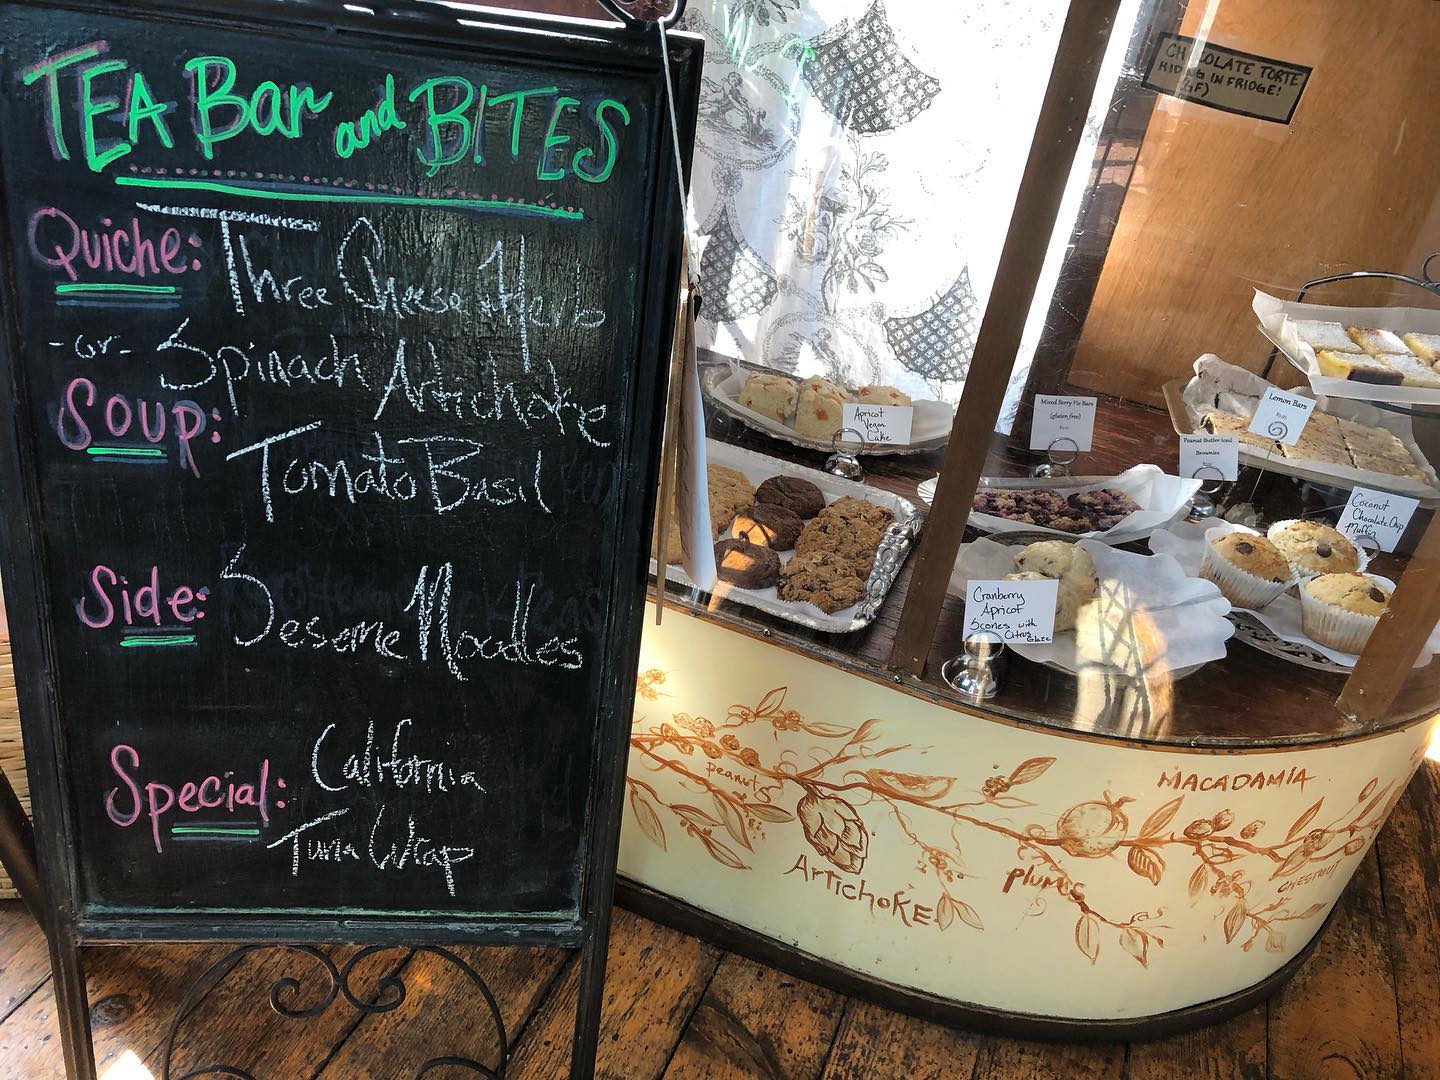 TEA Bar and BITES
Quiche: Three Cheese Herb
-or- Spinach Artichoke
Soup: Tomato Basil
Side: Seseme Noodles
Special: California
Tuna Wrap
CHOCOLATE TORTE
HIDING IN FRIDGE!
(GF)
Apricot
Vegan
Cake
Mixed Berry Pie Bars
(gluten free)
Lemon Bars
Peanut Butter Iced
Brownies
Coconut
Chocolate Chip
Muffin
Cranberry
Apricot
Scones with
Citrus Glaze
peanuts
Artichoke
plums
MACADAMIA
CHESTNUT